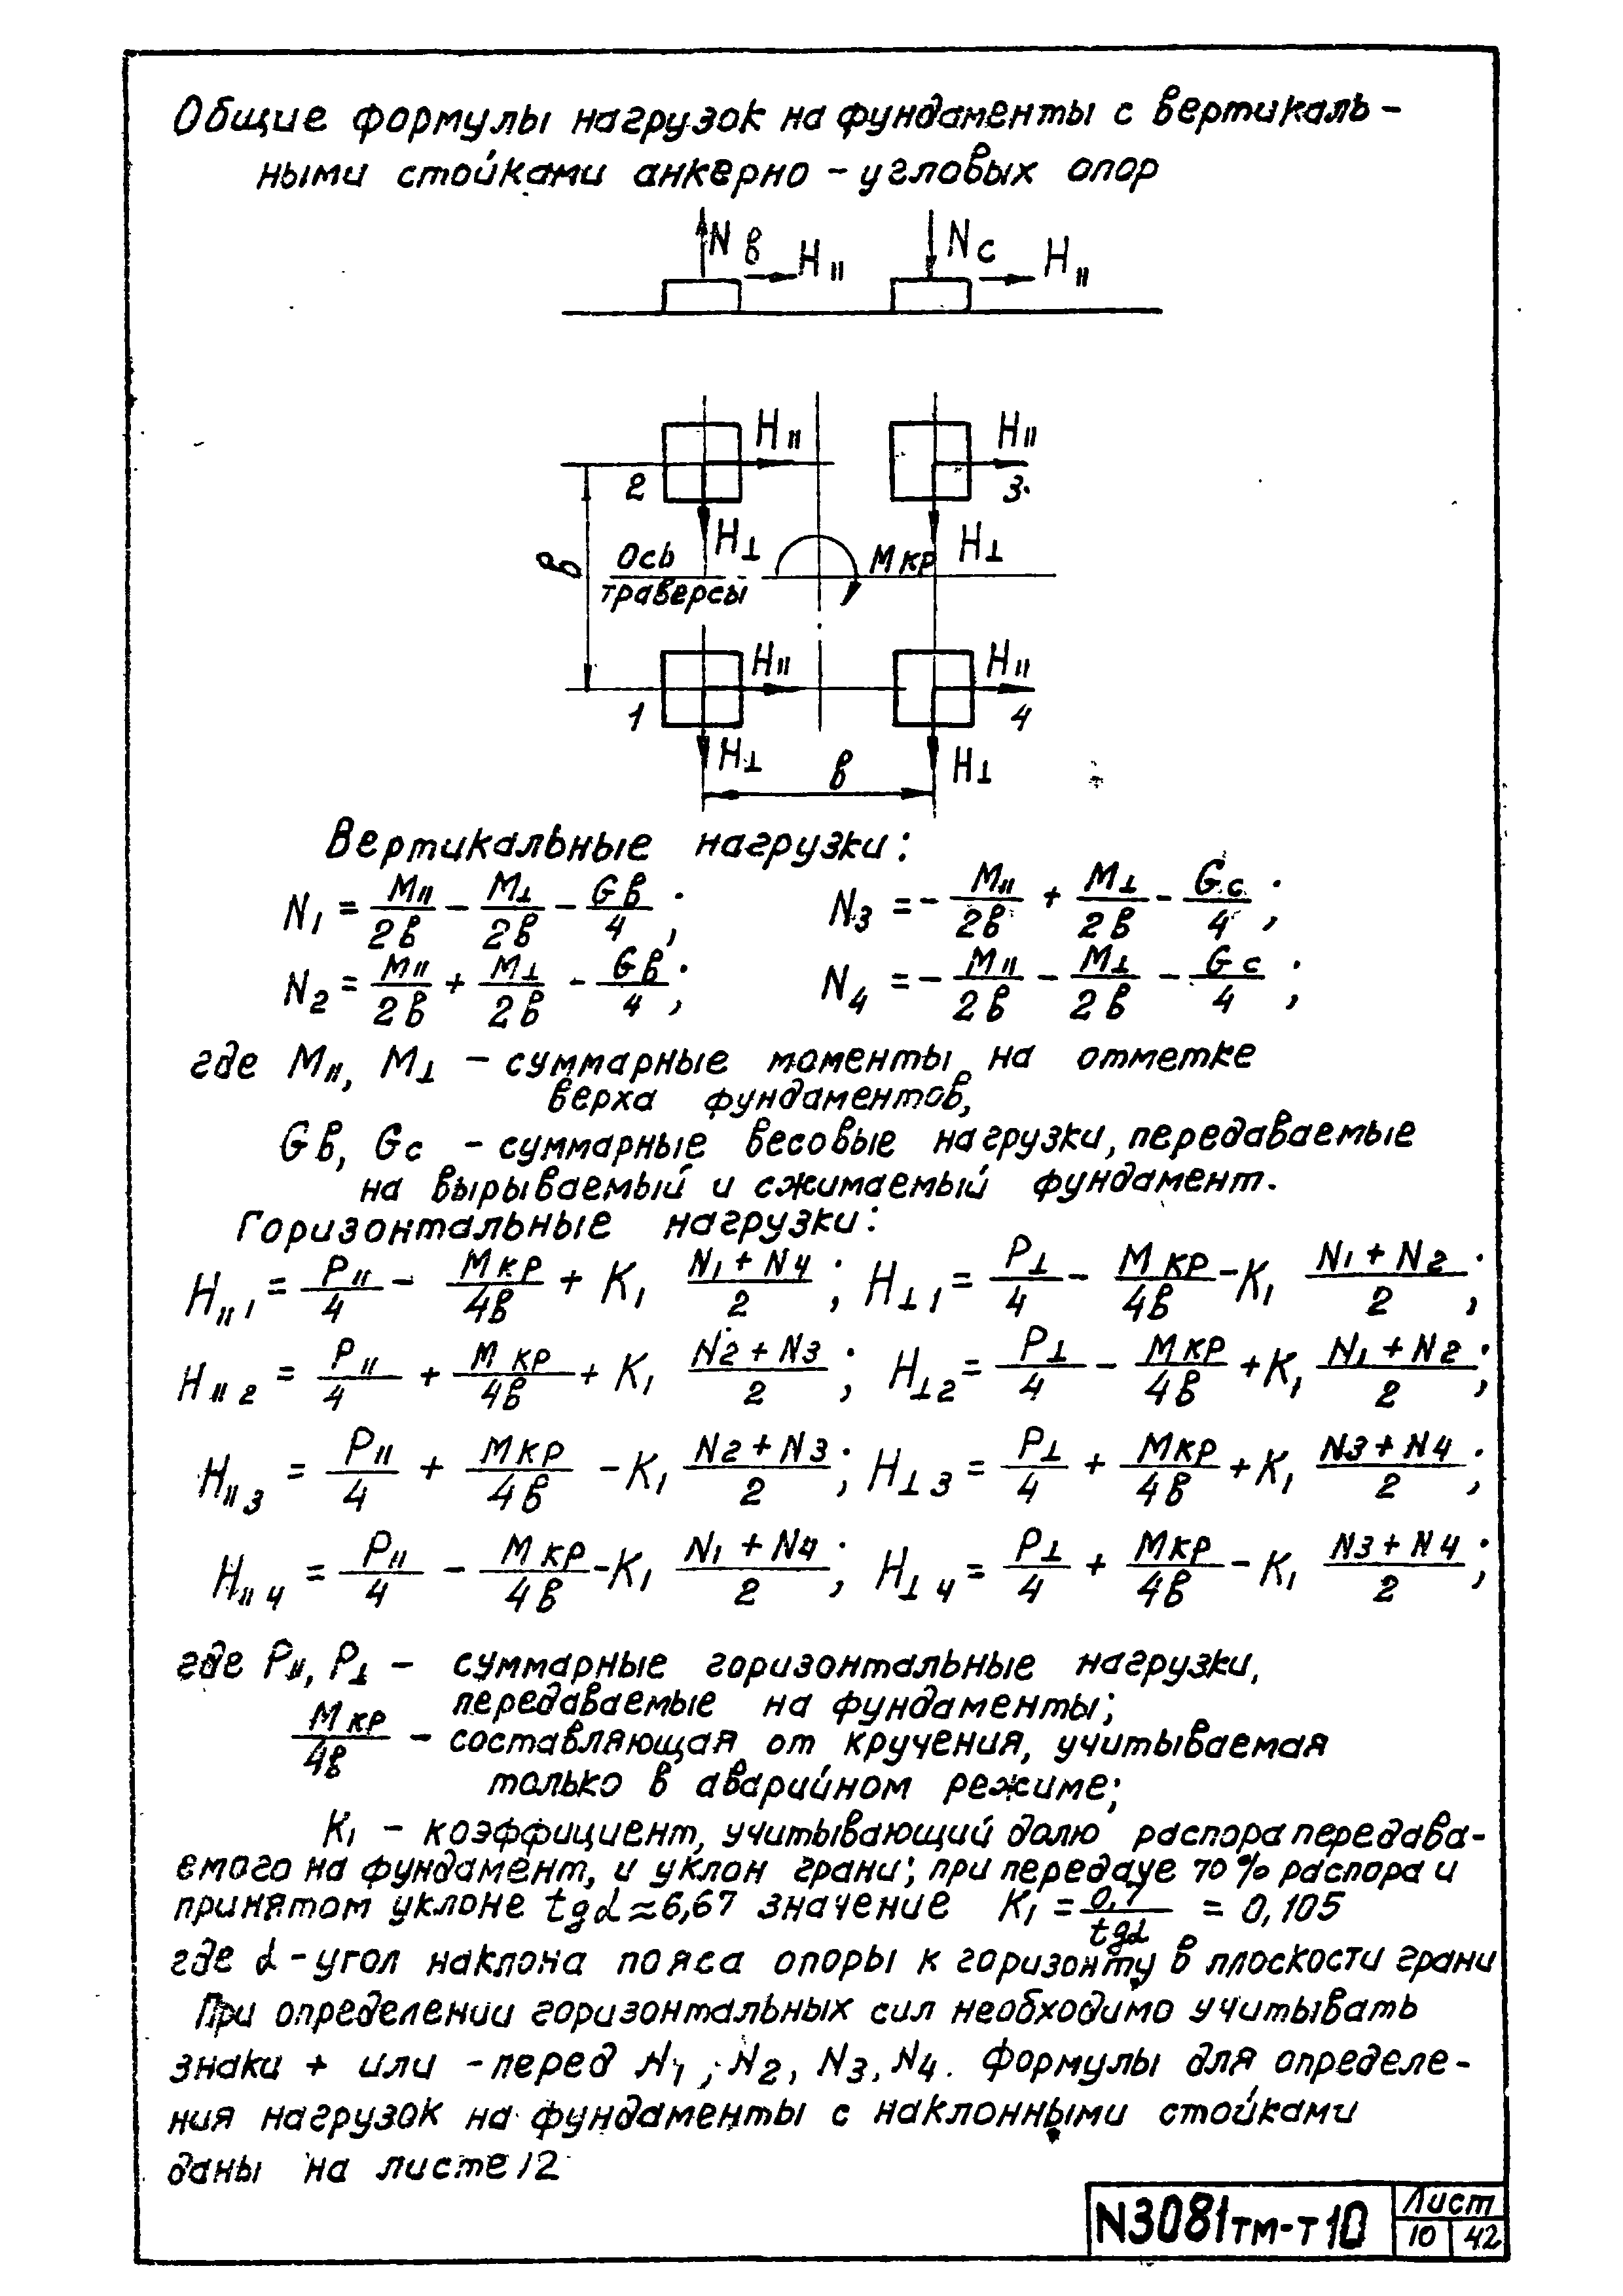 Общие формулы нагрузок на фундаменты с вертикаль-
ными стойками анкерно-угловых опор
Nв H॥ Nс H॥
H॥ H॥
2 3
H⊥ H⊥
в Ось Мкр
траверсы
H॥ H॥
1 4
H⊥ в H⊥
Вертикальные нагрузки:
N1 = М॥/2в - М⊥/2в - Gв/4; N3 = - М॥/2в + М⊥/2в - Gс/4;
N2 = М॥/2в + М⊥/2в - Gв/4; N4 = - М॥/2в - М⊥/2в - Gс/4;
где М॥, М⊥ - суммарные моменты на отметке
верха фундаментов,
Gв, Gс - суммарные весовые нагрузки, передаваемые
на вырываемый и сжимаемый фундамент.
Горизонтальные нагрузки:
H॥1 = Р॥/4 - Мкр/4в + К1 N1+N4/2; H⊥1 = Р⊥/4 - Мкр/4в - К1 N1+N2/2;
H॥2 = Р॥/4 + Мкр/4в + К1 N2+N3/2; H⊥2 = Р⊥/4 - Мкр/4в + К1 N1+N2/2;
H॥3 = Р॥/4 + Мкр/4в - К1 N2+N3/2; H⊥3 = Р⊥/4 + Мкр/4в + К1 N3+N4/2;
H॥4 = Р॥/4 - Мкр/4в - К1 N1+N4/2; H⊥4 = Р⊥/4 + Мкр/4в - К1 N3+N4/2;
где Р॥, Р⊥ - суммарные горизонтальные нагрузки,
передаваемые на фундаменты;
Мкр/4в - составляющая от кручения, учитываемая
только в аварийном режиме;
К1 - коэффициент, учитывающий долю распора передава-
емого на фундамент, и уклон грани; при передаче 70% распора и
принятом уклоне tgα≈6,67 значение К1 = 0,7/tgα = 0,105
где α - угол наклона пояса опоры к горизонту в плоскости грани
При определении горизонтальных сил необходимо учитывать
знаки + или - перед N1, N2, N3, N4. Формулы для определе-
ния нагрузок на фундаменты с наклонными стойками
даны на листе 12
N3081тм-т10 Лист
10 42